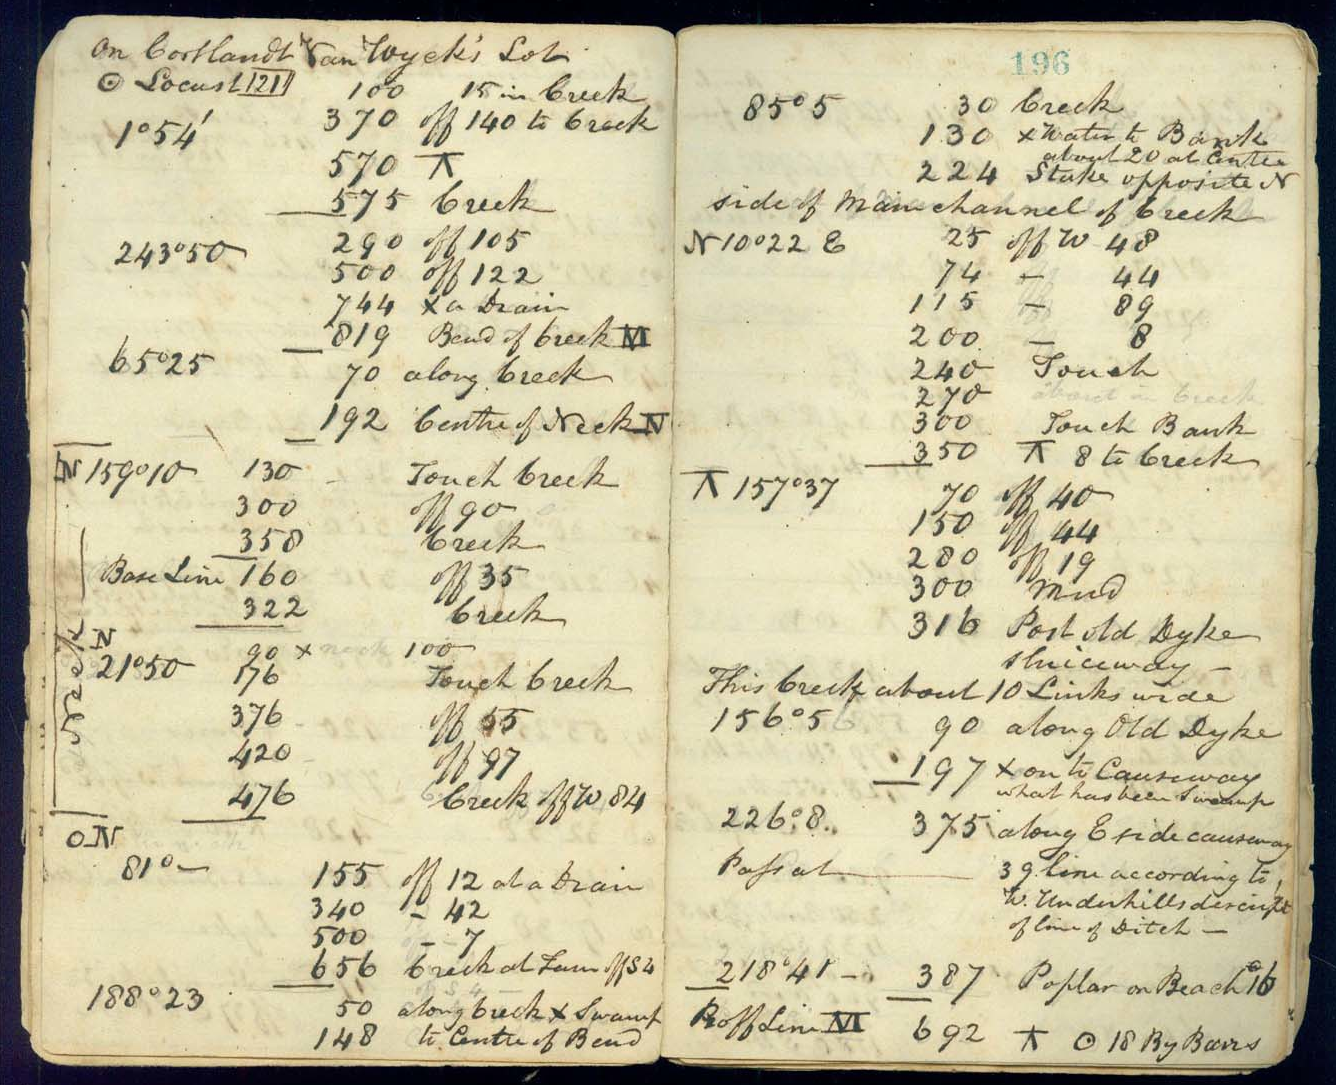 On Cortlandt Van Wyck's Lot
⊙ Locust 121
100 15 in Creek
1°54' 370 off 140 to Creek
570 ⊼
575 Creek
243°50 290 off 105
500 off 122
744 × a Drain
819 Bend of Creek M
65°25 70 along Creek
192 Centre of Neck N
N 159°10 130 - Touch Creek
300 off 90
358 Creek
Base Line 160 off 35
322 Creek
Neck
N
90 × neck 100
21°50 176 Touch Creek
376 off 55
420 off 97
476 Creek off W 84
O N
81°- 155 off 12 at a Drain
340 - 42
500 - 7
656 Creek at Turn off S 4
188°23 50 along Creek × Swamp
148 to Centre of Bend
196
85°5 30 Creek
130 × Water to Bank
about 20 at Centre
224 Stake opposite N
side of Main channel of Creek
N 10°22 E 25 off W 48
74 - 44
115 - 89
200 - 8
240 Touch
270
300 Touch Bank
350 ⊼ 8 to Creek
⊼ 157°37 70 off 40
150 off 44
280 off 19
300 Mud
316 Post old Dyke
sluiceway -
This Creek about 10 Links wide
156°5 90 along Old Dyke
197 × on to Causeway
what has been Swamp
226°8 375 along E side causeway
Pass at 39 line according to
W. Underhills descript
of line of Ditch -
218°41 - 387 Poplar on Beach 16
Pr off Line M 692 ⊼ ⊙ 18 By Bars